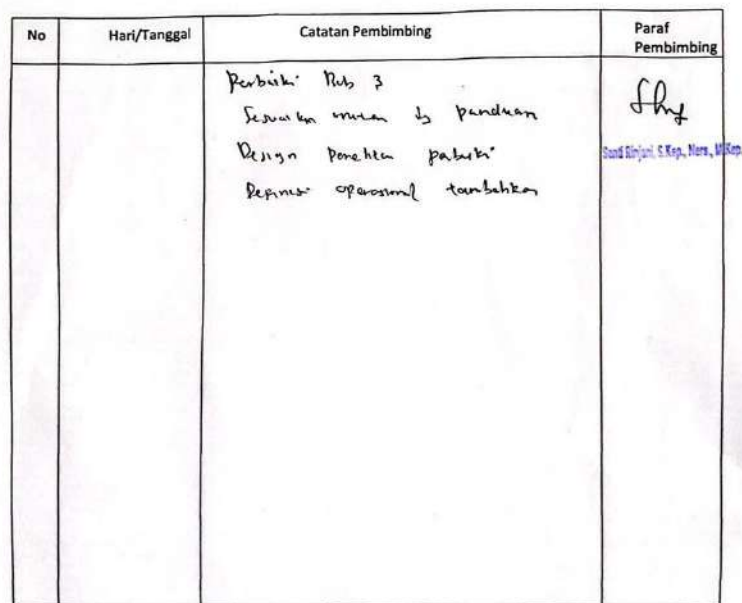 No Hari/Tanggal Catatan Pembimbing Paraf Pembimbing
Perbaiki Bab 3
Sesuaikan dg panduan
Design penelitian
Definisi operasional tambahkan
Santi Rinjani, S.Kep., Ners., M.Kep